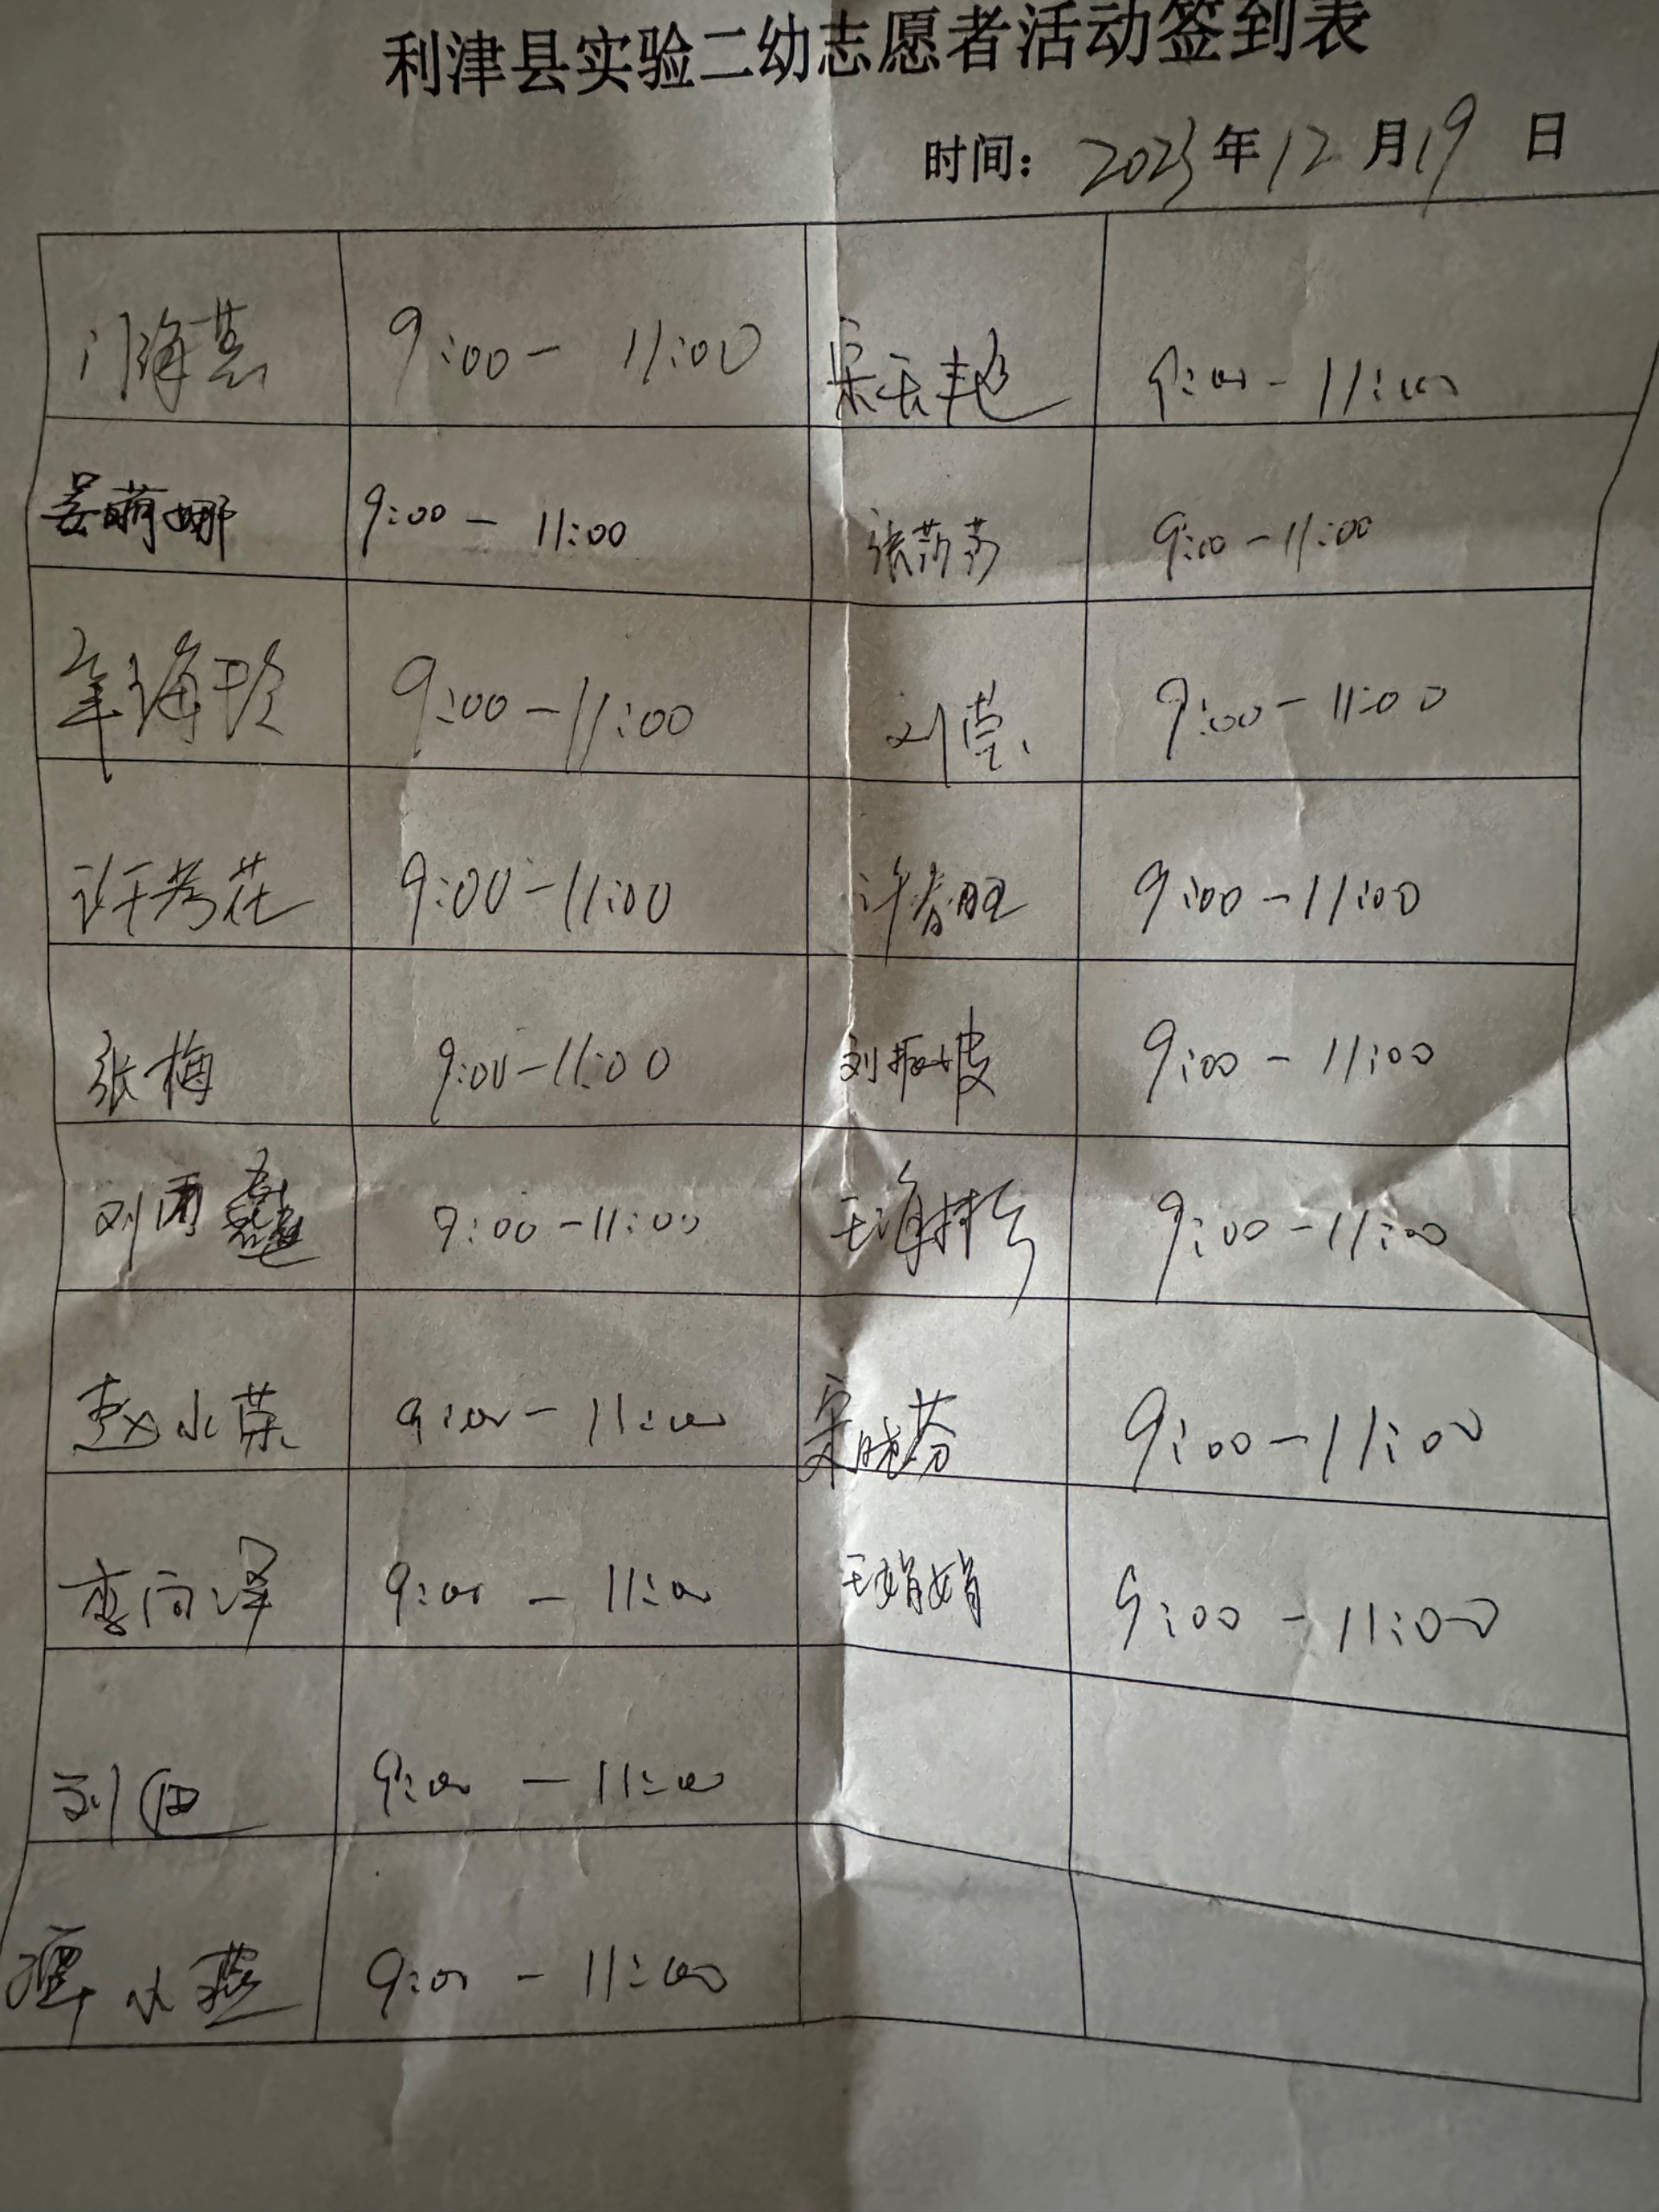 利津县实验二幼志愿者活动签到表
时间：2023年12月19日
9:00-11:00 9:00-11:00
姜萌娜 9:00-11:00 张莎莎 9:00-11:00
牟海玲 9:00-11:00 刘莹 9:00-11:00
许秀花 9:00-11:00 许春旺 9:00-11:00
张梅 9:00-11:00 刘振坡 9:00-11:00
刘雨 9:00-11:00 王海 9:00-11:00
赵水荣 9:00-11:00 宋晓芬 9:00-11:00
李向泽 9:00-11:00 王娟娟 9:00-11:00
刘 9:00-11:00
小燕 9:00-11:00